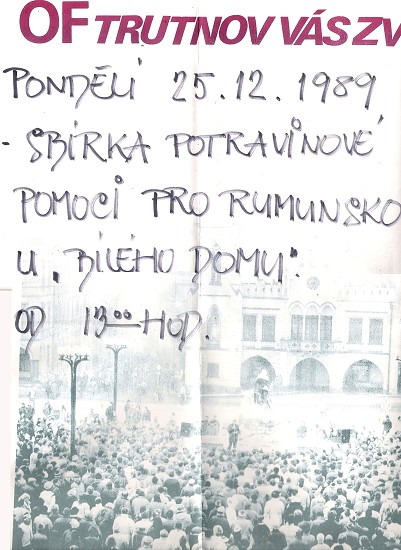 OF TRUTNOV VÁS ZV
PONDĚLÍ 25.12.1989
- SBÍRKA POTRAVINOVÉ
POMOCI PRO RUMUNSKO
U „BÍLÉHO DOMU“.
OD 13⁰⁰ HOD.